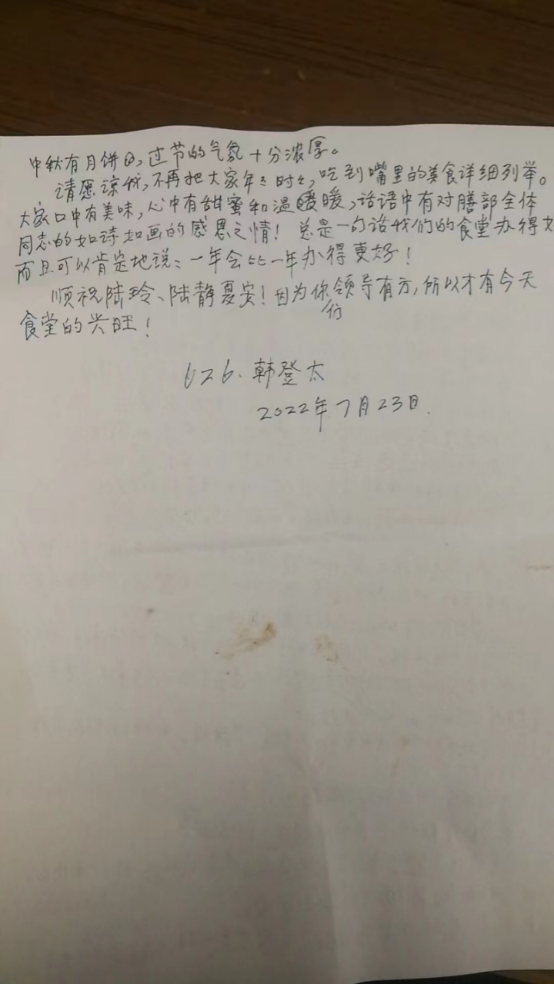 中秋有月饼,过节的气氛十分浓厚。
请愿谅我,不再把大家年年时时,吃到嘴里的美食详细列举。
大家口中有美味,心中有甜蜜和温暖,话语中有对膳部全体
同志的如诗如画的感恩之情!总是一句话我们的食堂办得好
而且可以肯定地说:一年会比一年办得更好!
顺祝陆玲、陆静夏安!因为你们领导有方,所以才有今天
食堂的兴旺!
626.韩登太
2022年7月23日.